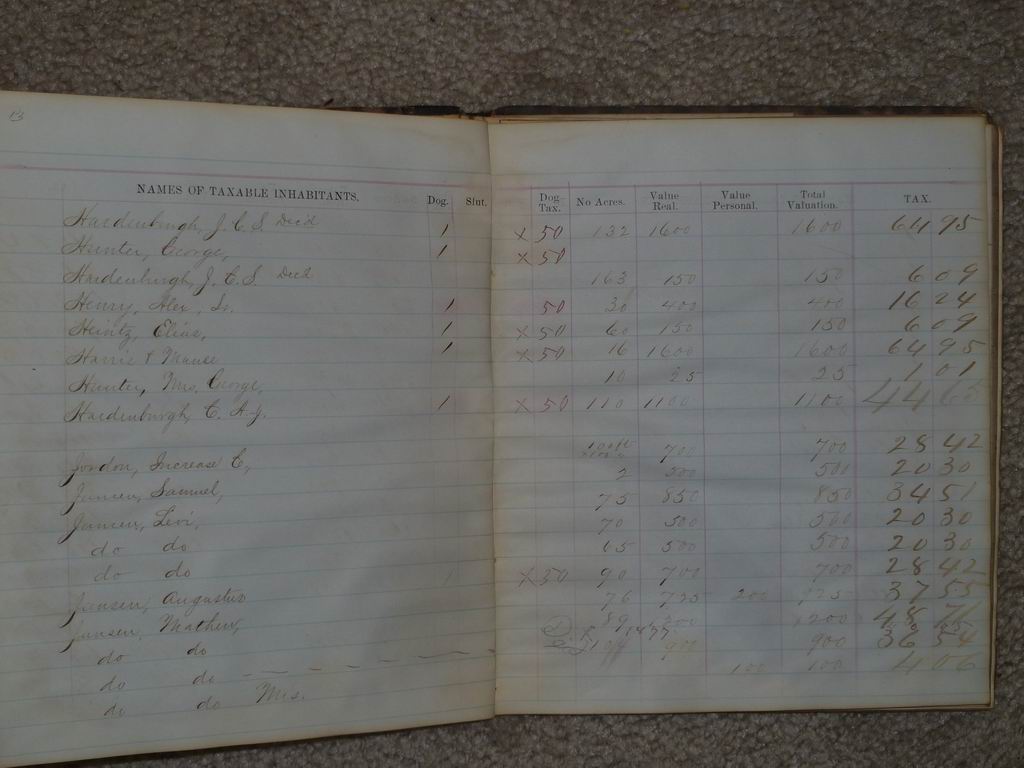 13
NAMES OF TAXABLE INHABITANTS. Dog. Slut. Dog Tax. No Acres. Value Real. Value Personal. Total Valuation. TAX.
Hardenburgh, J. C. S. Dec'd 1 x 50 132 1600 1600 64 95
Hunter, George, 1 x 50
Hardenburgh, J. C. S. Dec'd 163 150 150 6 09
Henry, Alex, Sr. 1 50 30 400 400 16 24
Heintz, Elias, 1 x 50 60 150 150 6 09
Harris & Mause 1 x 50 16 1600 1600 64 95
Hunter, Mrs. George, 10 25 25 1 01
Hardenburgh C. A. J. 1 x 50 110 1100 1100 44 65
Jordon, Increase C, 700 700 28 42
2 500 500 20 30
Jansen, Samuel, 75 850 850 34 51
Jansen, Levi, 70 500 500 20 30
do do 65 500 500 20 30
do do 1 x 50 90 700 700 28 42
Jansen, Augustus 76 725 200 925 37 55
Jansen, Mathew, 89 1200 1200 48
do do 900 900 36 54
do do 100 100 4 06
do do Mrs.